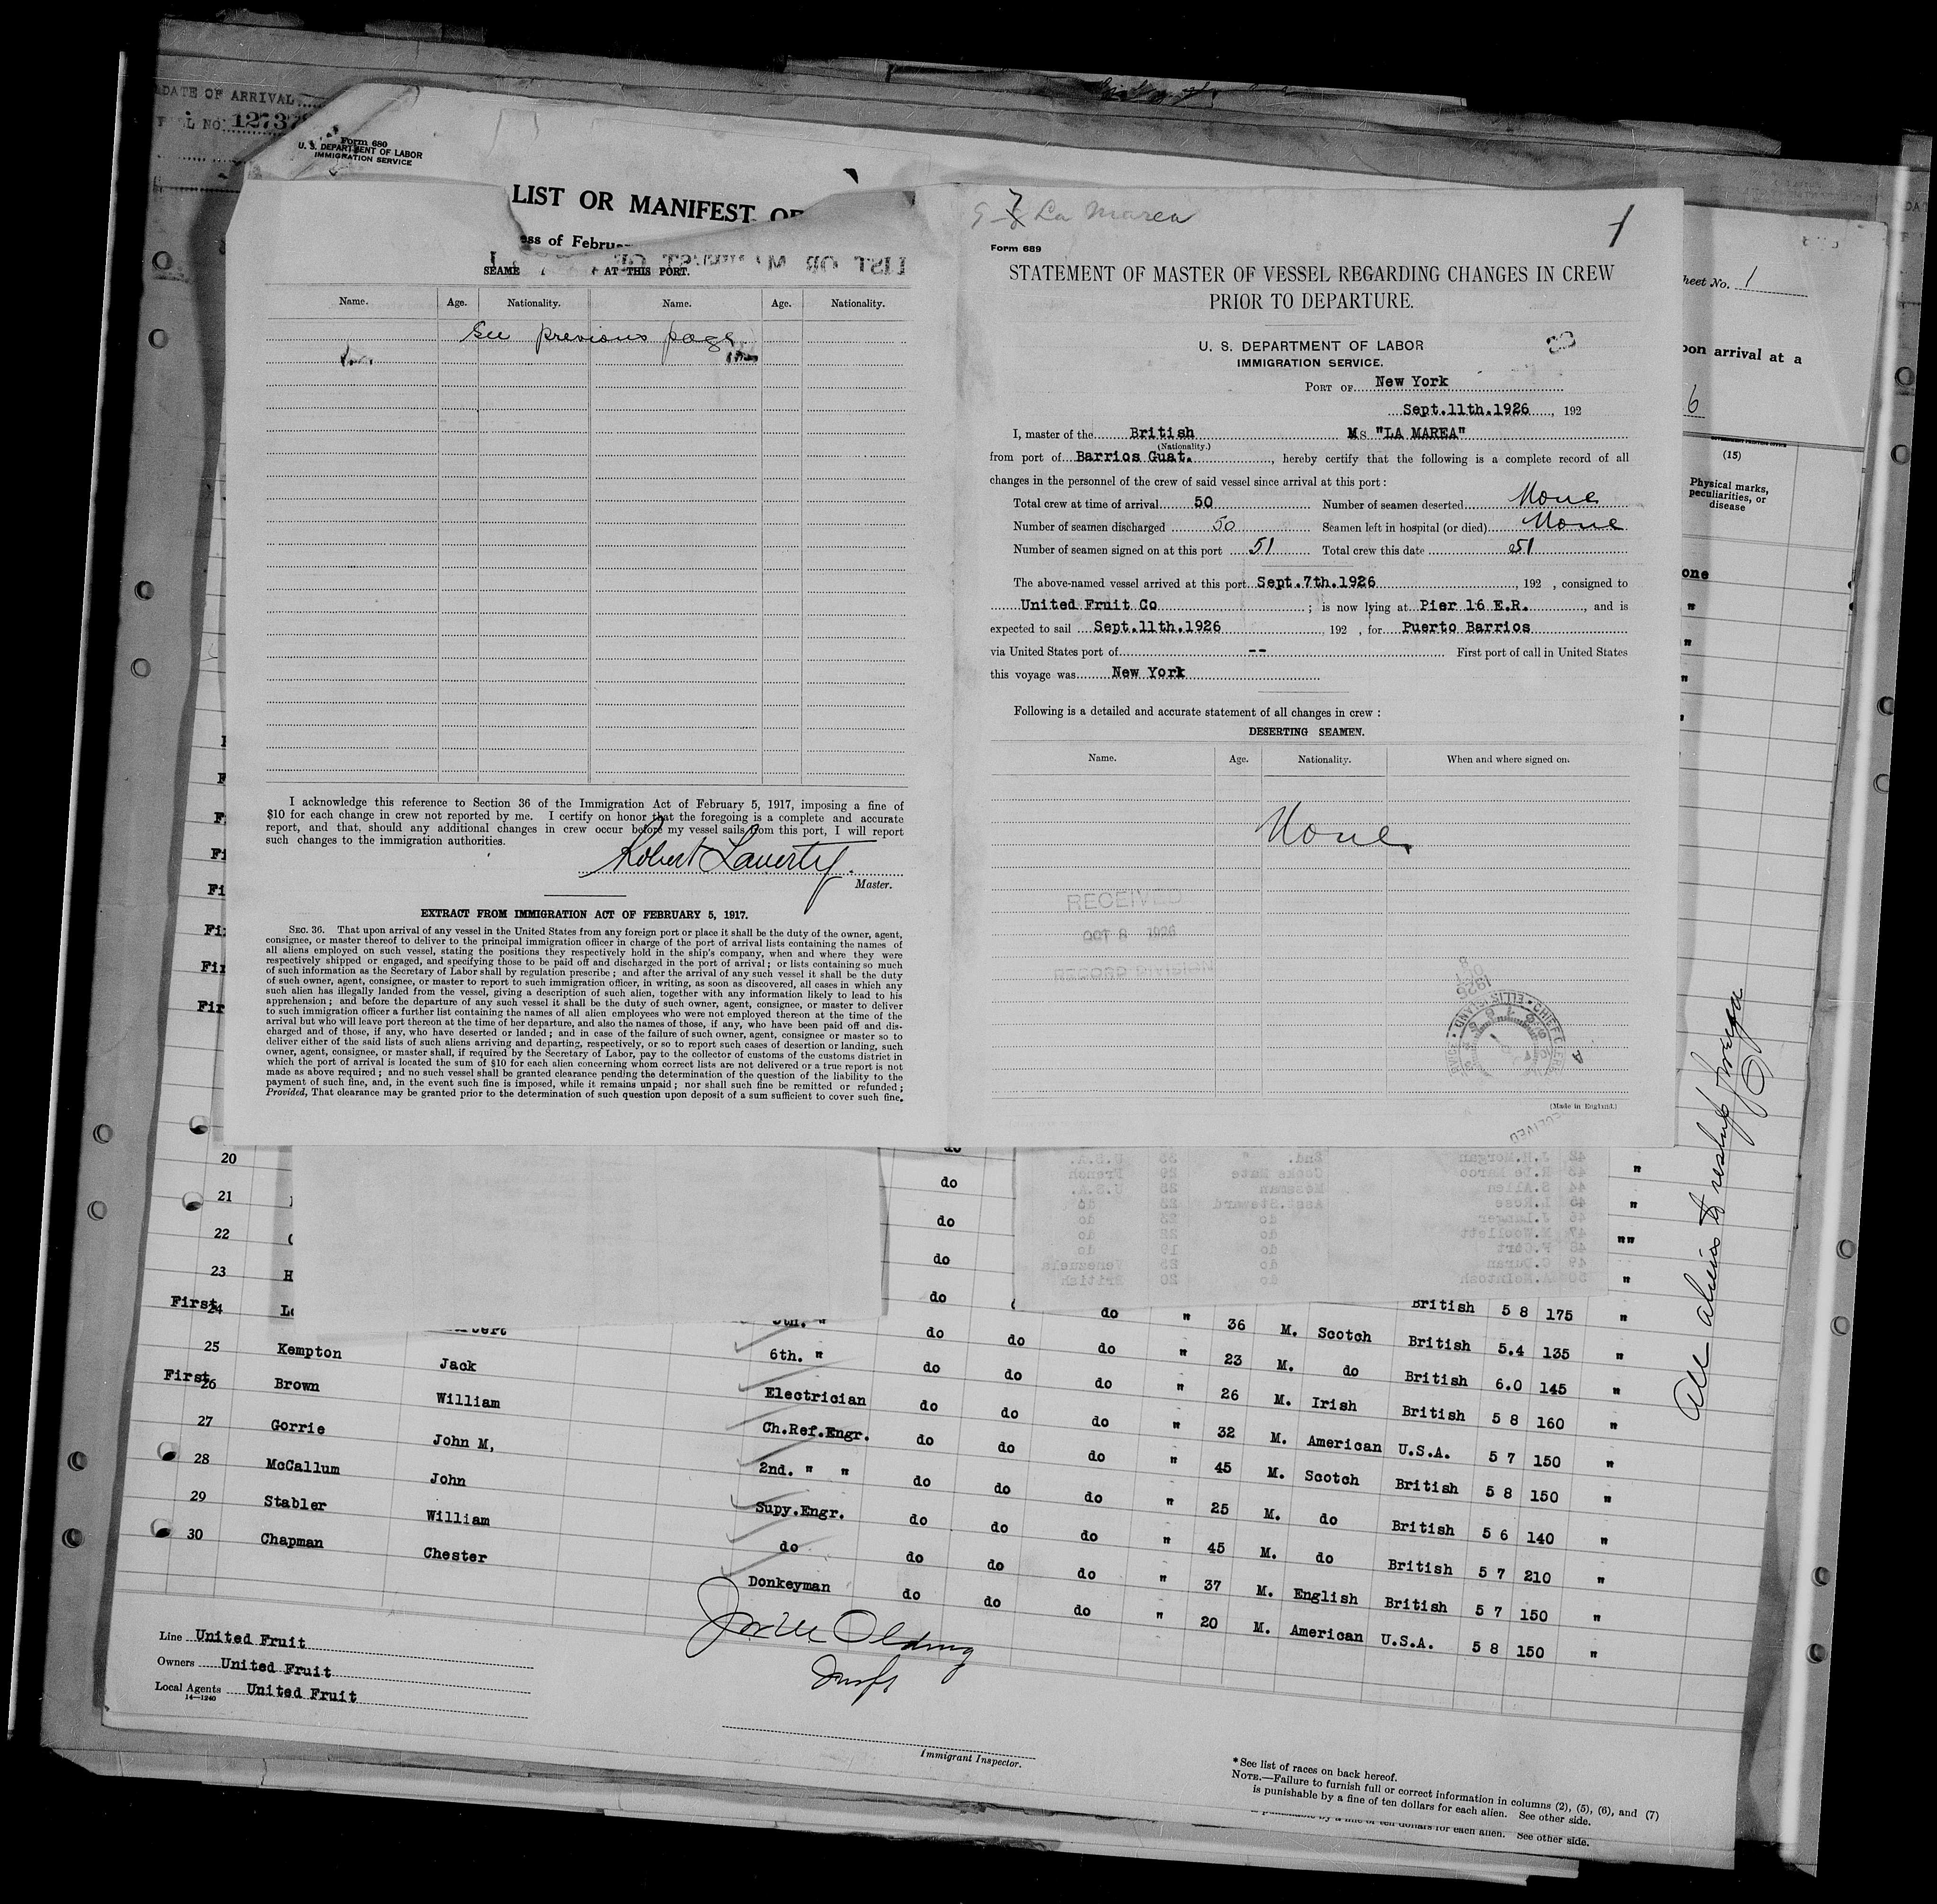 DATE OF ARRIVAL
12737
Form 680
U. S. DEPARTMENT OF LABOR
IMMIGRATION SERVICE
LIST OR MANIFEST OF
ess of Februa
SEAME AT THIS PORT.
Name. Age. Nationality. Name. Age. Nationality.
See previous page
I acknowledge this reference to Section 36 of the Immigration Act of February 5, 1917, imposing a fine of
$10 for each change in crew not reported by me. I certify on honor that the foregoing is a complete and accurate
report, and that, should any additional changes in crew occur before my vessel sails from this port, I will report
such changes to the immigration authorities.
Robert Laverty
Master.
EXTRACT FROM IMMIGRATION ACT OF FEBRUARY 5, 1917.
SEC. 36. That upon arrival of any vessel in the United States from any foreign port or place it shall be the duty of the owner, agent,
consignee, or master thereof to deliver to the principal immigration officer in charge of the port of arrival lists containing the names of
all aliens employed on such vessel, stating the positions they respectively hold in the ship's company, when and where they were
respectively shipped or engaged, and specifying those to be paid off and discharged in the port of arrival; or lists containing so much
of such information as the Secretary of Labor shall by regulation prescribe; and after the arrival of any such vessel it shall be the duty
of such owner, agent, consignee, or master to report to such immigration officer, in writing, as soon as discovered, all cases in which any
such alien has illegally landed from the vessel, giving a description of such alien, together with any information likely to lead to his
apprehension; and before the departure of any such vessel it shall be the duty of such owner, agent, consignee, or master to deliver
to such immigration officer a further list containing the names of all alien employees who were not employed thereon at the time of the
arrival but who will leave port thereon at the time of her departure, and also the names of those, if any, who have been paid off and dis-
charged and of those, if any, who have deserted or landed; and in case of the failure of such owner, agent, consignee or master so to
deliver either of the said lists of such aliens arriving and departing, respectively, or so to report such cases of desertion or landing, such
owner, agent, consignee, or master shall, if required by the Secretary of Labor, pay to the collector of customs of the customs district in
which the port of arrival is located the sum of $10 for each alien concerning whom correct lists are not delivered or a true report is not
made as above required; and no such vessel shall be granted clearance pending the determination of the question of the liability to the
payment of such fine, and, in the event such fine is imposed, while it remains unpaid; nor shall such fine be remitted or refunded;
Provided, That clearance may be granted prior to the determination of such question upon deposit of a sum sufficient to cover such fine.
La Marea
1
Form 689
STATEMENT OF MASTER OF VESSEL REGARDING CHANGES IN CREW
PRIOR TO DEPARTURE.
U. S. DEPARTMENT OF LABOR
IMMIGRATION SERVICE.
PORT OF New York
Sept.11th.1926, 192
I, master of the British MS "LA MAREA"
(Nationality.)
from port of Barrios Guat., hereby certify that the following is a complete record of all
changes in the personnel of the crew of said vessel since arrival at this port:
Total crew at time of arrival 50 Number of seamen deserted None
Number of seamen discharged 50 Seamen left in hospital (or died) None
Number of seamen signed on at this port 51 Total crew this date 51
The above-named vessel arrived at this port Sept.7th.1926, 192 , consigned to
United Fruit Co ; is now lying at Pier 16 E.R., and is
expected to sail Sept.11th.1926 192 , for Puerto Barrios
via United States port of -- First port of call in United States
this voyage was New York
Following is a detailed and accurate statement of all changes in crew:
DESERTING SEAMEN.
Name. Age. Nationality. When and where signed on.
None
RECEIVED
OCT 8 1926
RECORD DIVISION
(Made in England.)
heet No. 1
pon arrival at a
6
(15)
Physical marks, peculiarities, or disease
one
All aliens to reship foreign
20 do "
21 do "
22 do ""
23 H do "
First 24 do do " British 5 8 175 "
do do do " 36 M. Scotch British 5.4 135 "
25 Kempton Jack 6th. " do do do " 23 M. do British 6.0 145 "
First 26 Brown William Electrician do do do " 26 M. Irish British 5 8 160 "
27 Gorrie John M, Ch.Ref.Engr. do do do " 32 M. American U.S.A. 5 7 150 "
28 McCallum John 2nd. " " do do do " 45 M. Scotch British 5 8 150 "
29 Stabler William Supy.Engr. do do do " 25 M. do British 5 6 140 "
30 Chapman Chester do do do do " 45 M. do British 5 7 210 "
Donkeyman do do do " 37 M. English British 5 7 150 "
" 20 M. American U.S.A. 5 8 150 "
Line United Fruit
Owners United Fruit
Local Agents United Fruit
14—1240
Immigrant Inspector.
*See list of races on back hereof.
NOTE.—Failure to furnish full or correct information in columns (2), (5), (6), and (7)
is punishable by a fine of ten dollars for each alien. See other side.
is punishable by a fine of ten dollars for each alien. See other side.